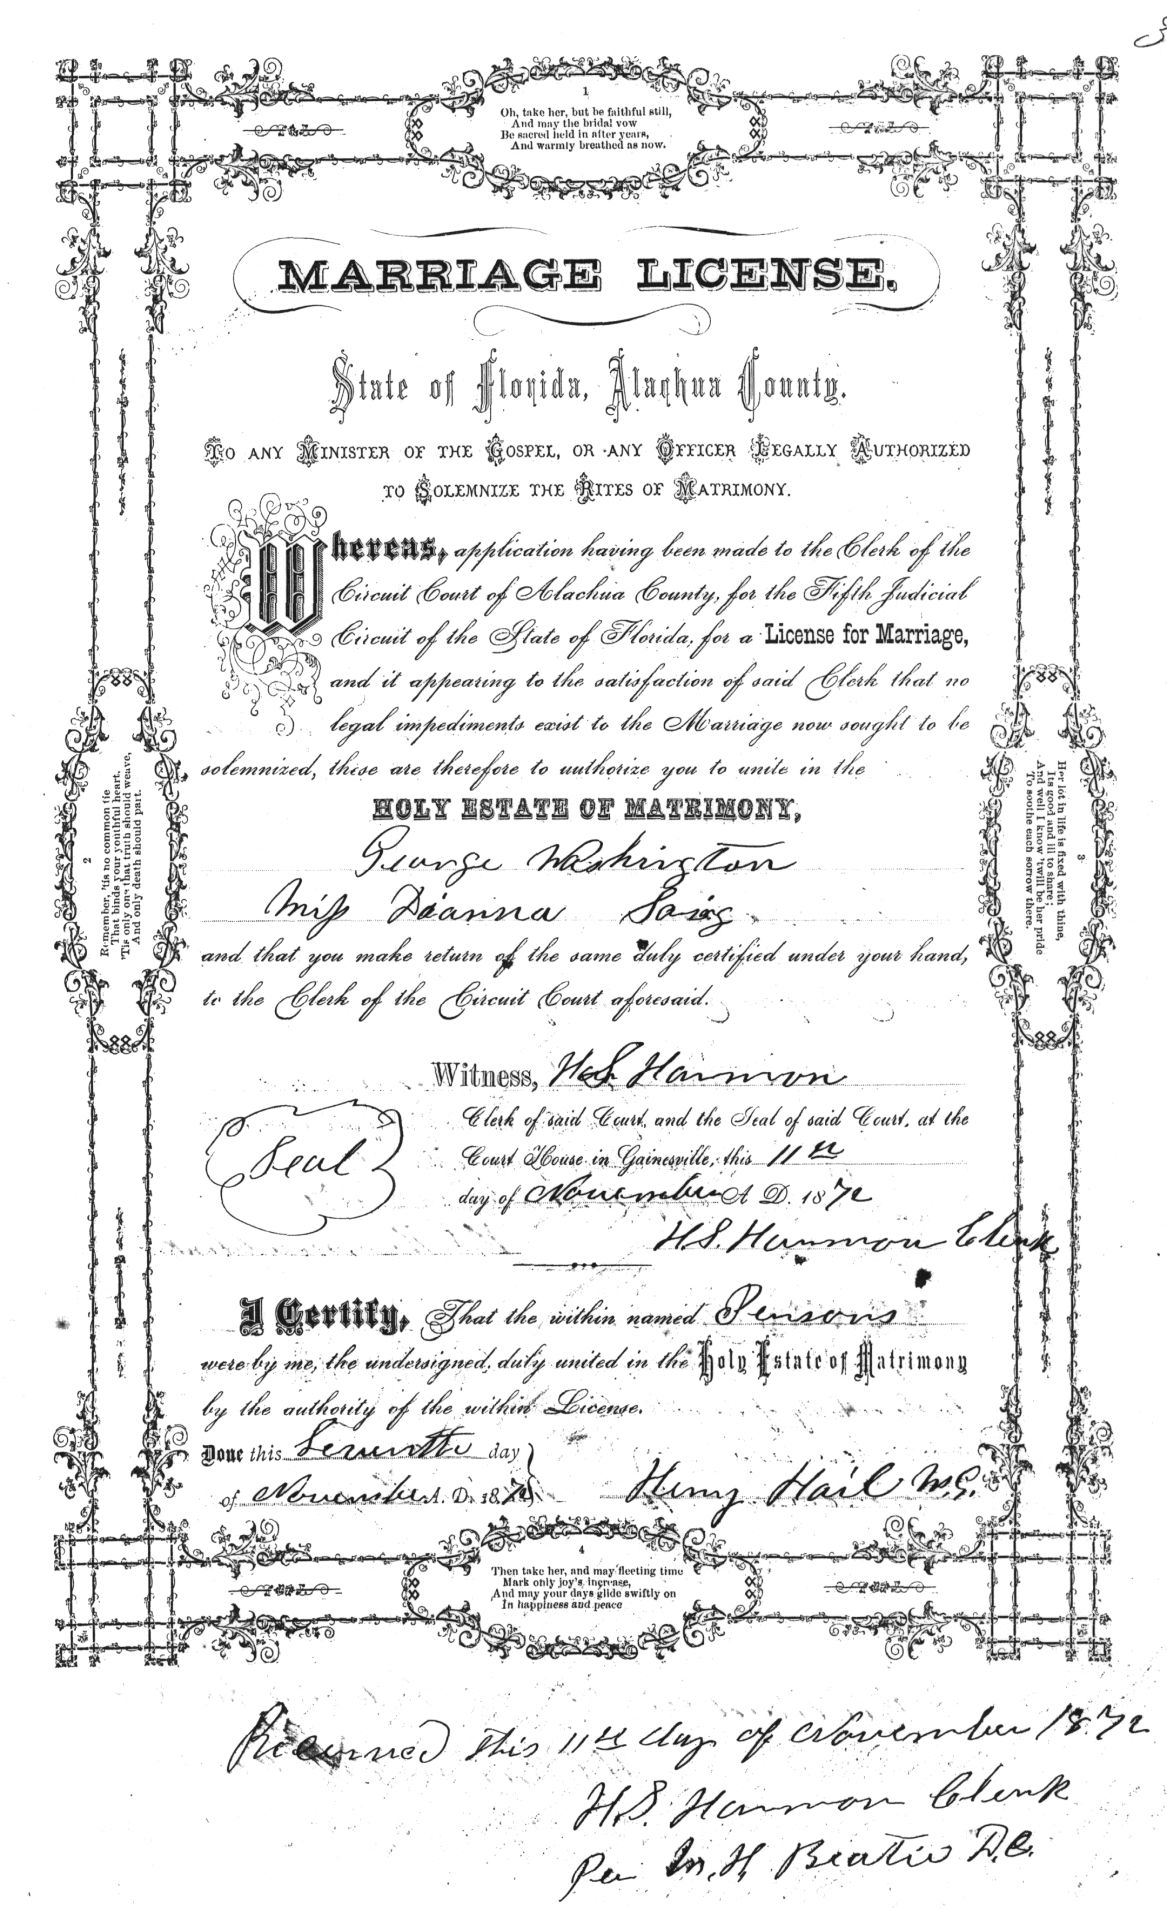 1
Oh, take her, but be faithful still,
And may the bridal vow
Be sacred held in after years,
And warmly breathed as now.
MARRIAGE LICENSE.
State of Florida, Alachua County.
TO ANY MINISTER OF THE GOSPEL, OR ANY OFFICER LEGALLY AUTHORIZED
TO SOLEMNIZE THE RITES OF MATRIMONY.
Whereas, application having been made to the Clerk of the
Circuit Court of Alachua County, for the Fifth Judicial
Circuit of the State of Florida, for a License for Marriage,
and it appearing to the satisfaction of said Clerk that no
legal impediments exist to the Marriage now sought to be
solemnized, these are therefore to authorize you to unite in the
HOLY ESTATE OF MATRIMONY,
George Washington
Miss Dianna
and that you make return of the same duly certified under your hand,
to the Clerk of the Circuit Court aforesaid.
Witness, H.S. Harmon
Clerk of said Court, and the Seal of said Court, at the
Seal
Court House in Gainesville, this 11th
day of November A. D. 1872
H.S. Harmon Clerk
I Certify, That the within named Persons
were by me, the undersigned, duly united in the Holy Estate of Matrimony
by the authority of the within License.
Done this Seventh day
of November A. D. 1872
Henry Hail M.G.
2
Remember, 'tis no common tie
That binds your youthful heart,
'Tis only one that truth should weave,
And only death should part.
3
Her lot in life is fixed with thine,
Its good and ill to share;
And well I know 'twill be her pride
To soothe each sorrow there.
4
Then take her, and may fleeting time
Mark only joy's increase,
And may your days glide swiftly on
In happiness and peace
this 11th day of November 1872
H.S. Harmon Clerk
Per M.H. Beatie D.C.